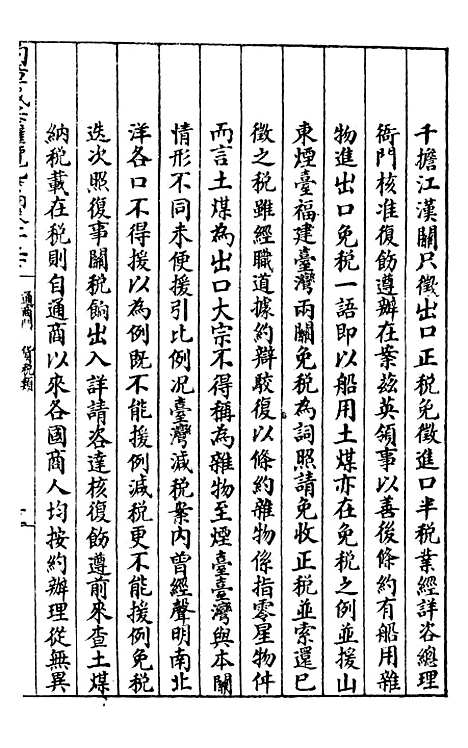 千擔江漢關只徵出口正稅免徵進口半稅業經詳咨總理
衙門核准復飭遵辦在案茲英領事以善後條約有船用雜
物進出口免稅一語即以船用土煤亦在免稅之例並援山
東煙臺福建臺灣兩關免稅為詞照請免收正稅並索還已
徵之稅雖經職道據約辯駁復以條約雜物係指零星物件
而言土煤為出口大宗不得稱為雜物至煙臺臺灣與本關
情形不同未便援引比例況臺灣減稅案內曾經聲明南北
洋各口不得援以為例既不能援例減稅更不能援例免稅
迭次照復事關稅餉出入詳請咨達核復飭遵前來查土煤
納稅載在稅則自通商以來各國商人均按約辦理從無異
通商門 貨稅類